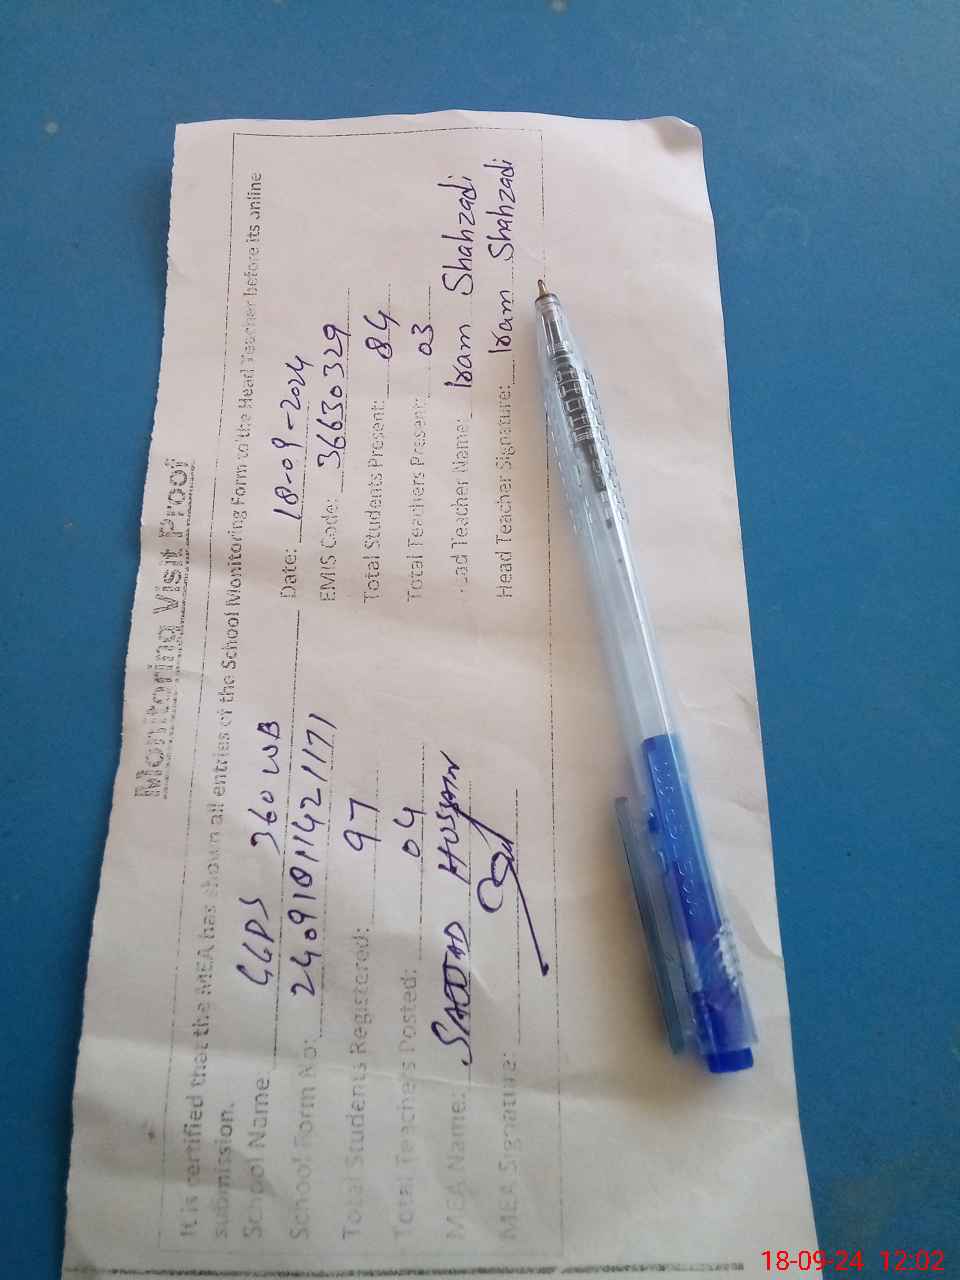 Monitoring Visit Proof
It is certified that the MEA has shown all entries of the School Monitoring Form to the Head Teacher before its online
submission.
School Name: GGPS 360 WB Date: 18-09-2024
School Form No: 240910114211171 EMIS Code: 36630329
Total Students Registered: 97 Total Students Present: 84
Total Teachers Posted: 04 Total Teachers Present: 03
MEA Name: SAJJAD HUSSAIN ead Teacher Name: Iram Shahzadi
MEA Signature: Head Teacher Signature: Iram Shahzadi
18-09-24 12:02